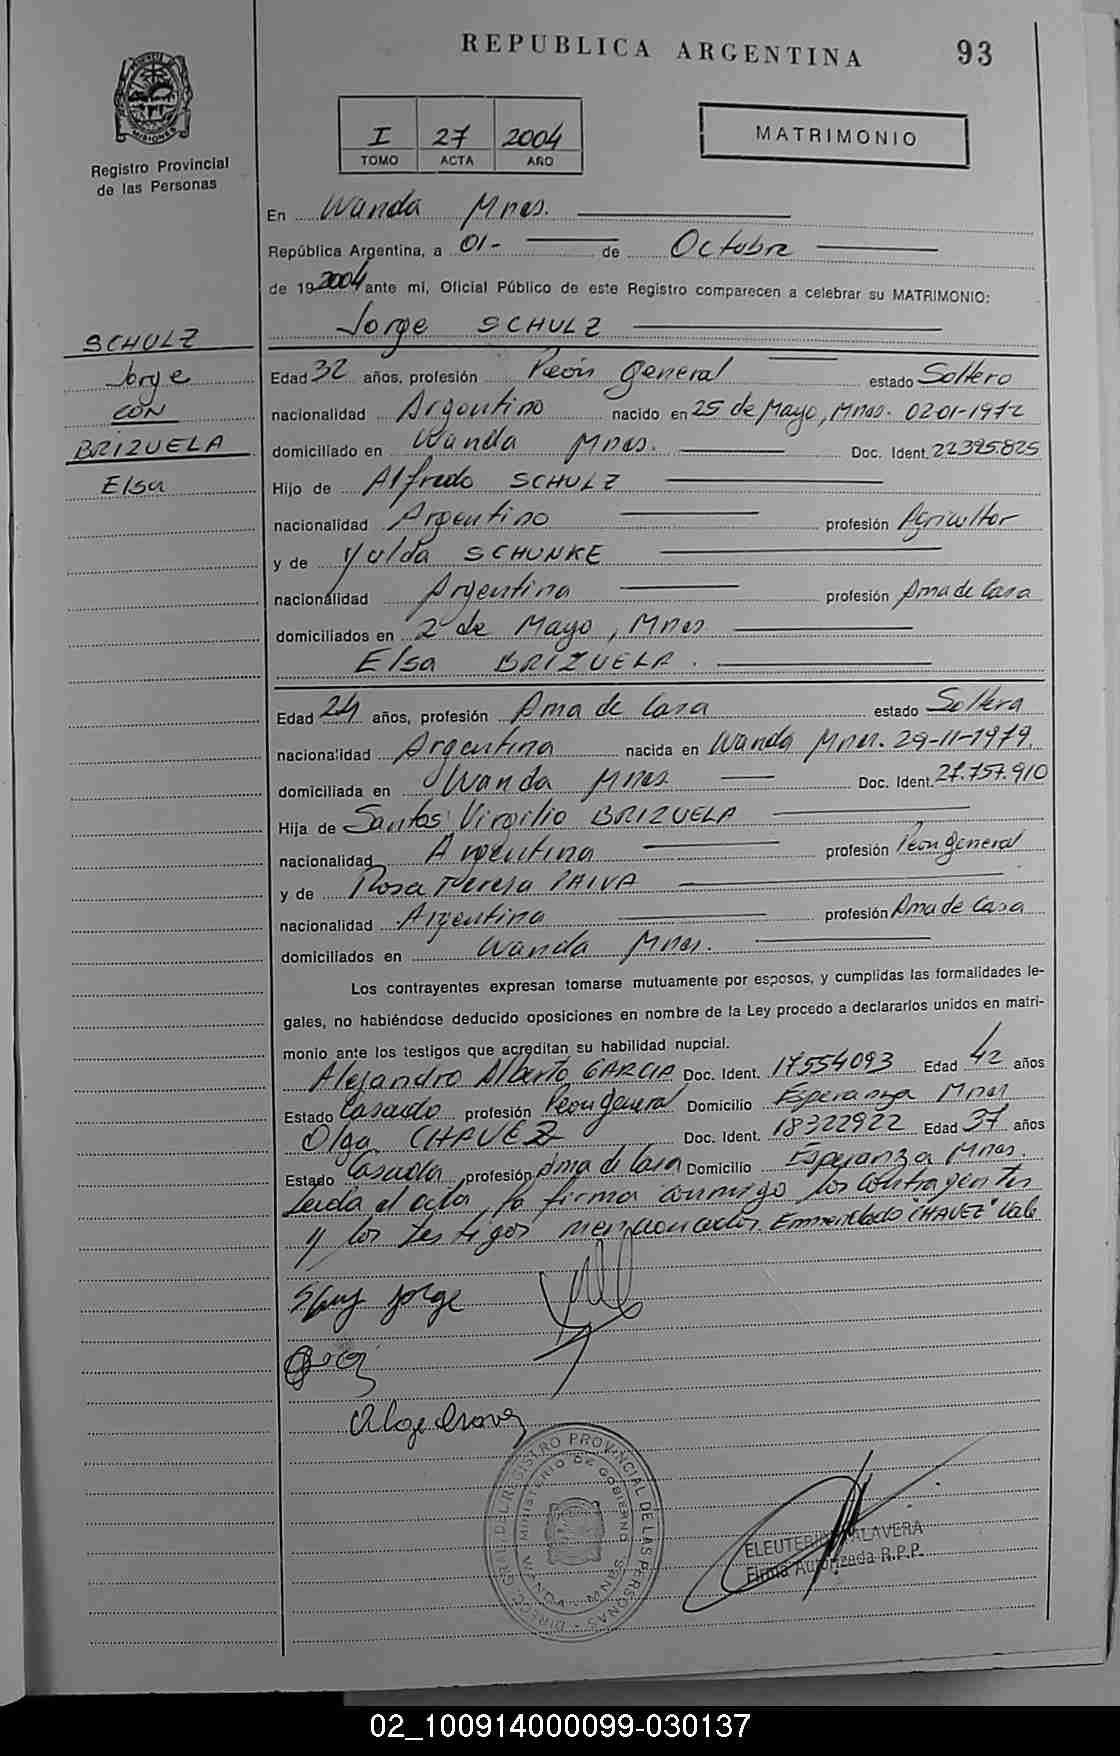 REPUBLICA ARGENTINA 93
MISIONES
Registro Provincial
de las Personas
I 27 2004
TOMO ACTA AÑO
MATRIMONIO
En Wanda Mnes.
República Argentina, a 01- de Octubre
de 19 2004 ante mí, Oficial Público de este Registro comparecen a celebrar su MATRIMONIO:
Jorge SCHULZ
SCHULZ
Jorge
CON
BRIZUELA
Elsa
Edad 32 años, profesión Peón General estado Soltero
nacionalidad Argentino nacido en 25 de Mayo, Mnes. 02-01-1972
domiciliado en Wanda Mnes. Doc. Ident. 22.395.825
Hijo de Alfredo SCHULZ
nacionalidad Argentino profesión Agricultor
y de Yulda SCHUNKE
nacionalidad Argentina profesión Ama de Casa
domiciliados en 2 de Mayo, Mnes.
Elsa BRIZUELA.
Edad 24 años, profesión Ama de Casa estado Soltera
nacionalidad Argentina nacida en Wanda Mnes. 29-11-1979.
domiciliada en Wanda Mnes Doc. Ident. 27.757.910
Hija de Santos Virgilio BRIZUELA
nacionalidad Argentina profesión Peon general
y de Rosa Teresa PAIVA
nacionalidad Argentina profesión Ama de Casa
domiciliados en Wanda Mnes.
Los contrayentes expresan tomarse mutuamente por esposos, y cumplidas las formalidades le-
gales, no habiéndose deducido oposiciones en nombre de la Ley procedo a declararlos unidos en matri-
monio ante los testigos que acreditan su habilidad nupcial.
Alejandro Alberto GARCIA Doc. Ident. 17554093 Edad 42 años
Estado Casado profesión Peon general Domicilio Esperanza Mnes
Olga CHAVEZ Doc. Ident. 18322922 Edad 37 años
Estado Casada profesión Ama de Casa Domicilio Esperanza Mnes.
Leida el acta, la firma conmigo los contrayentes
y los testigos mencionados. Enmendado "CHAVEZ" Vale
Jorge
DIRECC. GRAL. DEL REGISTRO PROVINCIAL DE LAS PERSONAS
MINISTERIO DE GOBIERNO
WANDA
ELEUTERIO TALAVERA
Firma Autorizada R.P.P.
02_100914000099-030137